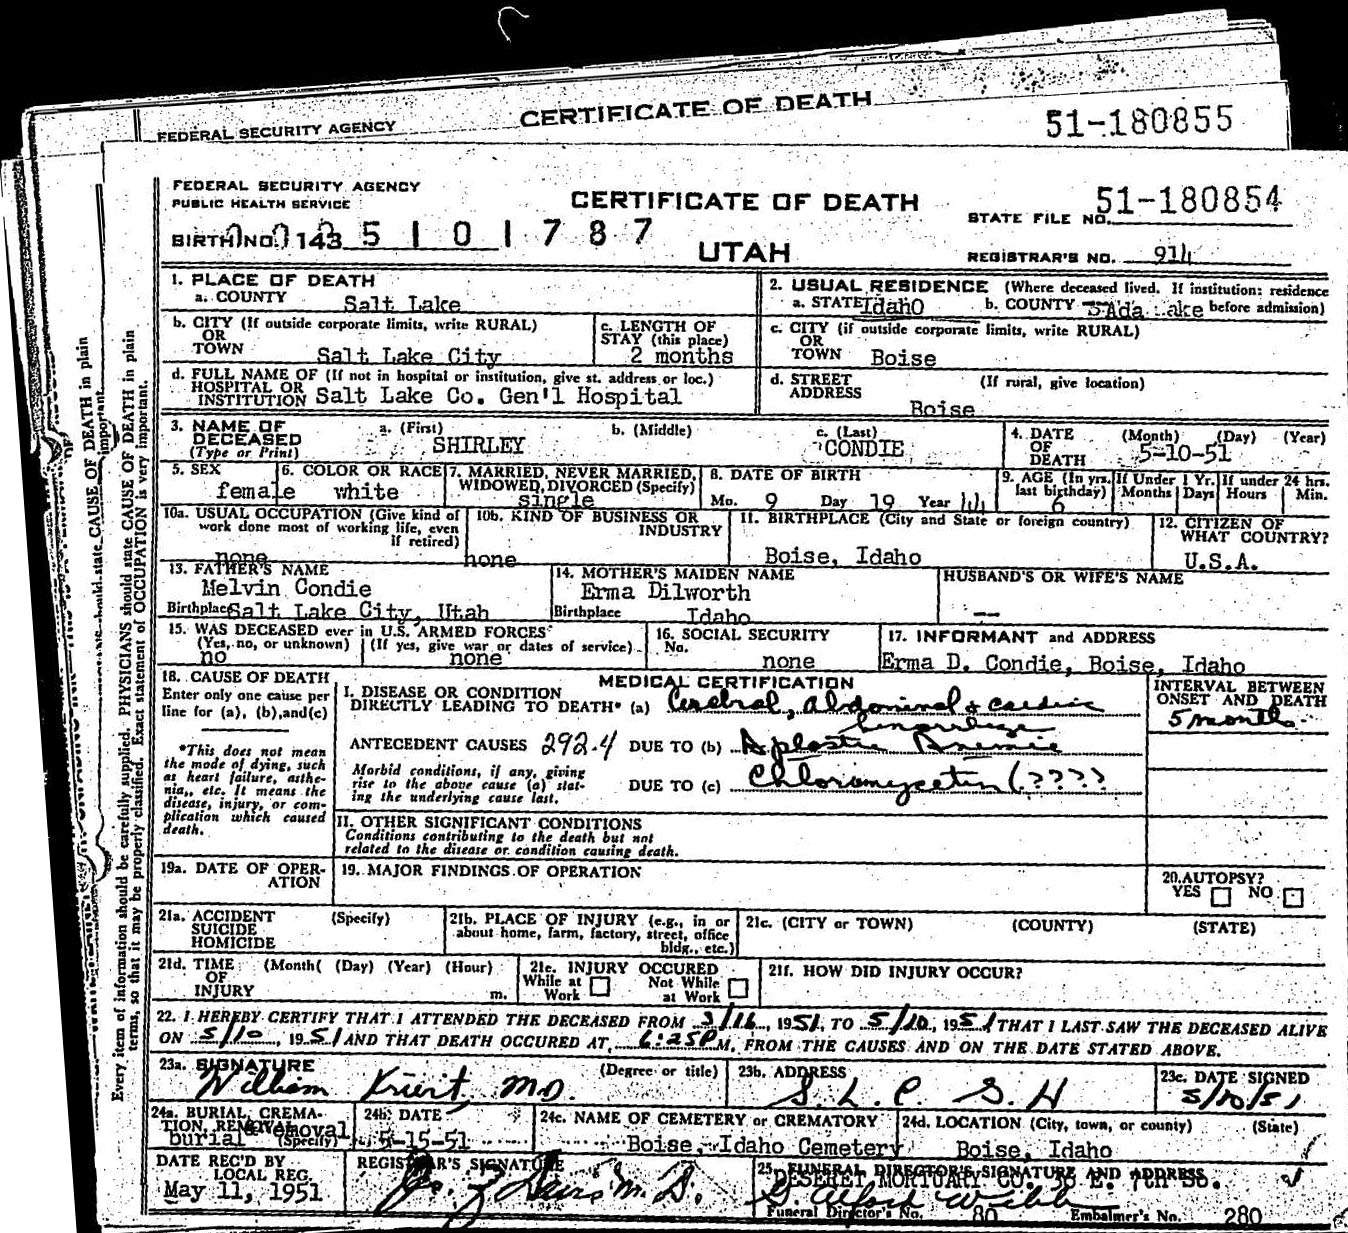 CERTIFICATE OF DEATH
FEDERAL SECURITY AGENCY
51-180855
FEDERAL SECURITY AGENCY
PUBLIC HEALTH SERVICE
CERTIFICATE OF DEATH
51-180854
STATE FILE NO.
BIRTH NO. 143 5 1 0 1 7 8 7
UTAH
REGISTRAR'S NO. 914
1. PLACE OF DEATH
a. COUNTY Salt Lake
2. USUAL RESIDENCE (Where deceased lived. If institution: residence before admission)
a. STATE Idaho b. COUNTY Ada
b. CITY (If outside corporate limits, write RURAL) OR TOWN Salt Lake City
c. LENGTH OF STAY (this place) 2 months
c. CITY (if outside corporate limits, write RURAL) OR TOWN Boise
d. FULL NAME OF (If not in hospital or institution, give st. address or loc.) HOSPITAL OR INSTITUTION Salt Lake Co. Gen'l Hospital
d. STREET ADDRESS (If rural, give location) Boise
3. NAME OF DECEASED (Type or Print)
a. (First) SHIRLEY
b. (Middle)
c. (Last) CONDIE
4. DATE OF DEATH (Month) (Day) (Year) 5-10-51
5. SEX female
6. COLOR OR RACE white
7. MARRIED, NEVER MARRIED, WIDOWED, DIVORCED (Specify) single
8. DATE OF BIRTH Mo. 9 Day 19 Year 44
9. AGE (In yrs. last birthday) 6
If Under 1 Yr. Months Days
If under 24 hrs. Hours Min.
10a. USUAL OCCUPATION (Give kind of work done most of working life, even if retired) none
10b. KIND OF BUSINESS OR INDUSTRY none
11. BIRTHPLACE (City and State or foreign country) Boise, Idaho
12. CITIZEN OF WHAT COUNTRY? U.S.A.
13. FATHER'S NAME Melvin Condie
Birthplace Salt Lake City, Utah
14. MOTHER'S MAIDEN NAME Erma Dilworth
Birthplace Idaho
HUSBAND'S OR WIFE'S NAME --
15. WAS DECEASED ever in U.S. ARMED FORCES (Yes, no, or unknown) no
(If yes, give war or dates of service) none
16. SOCIAL SECURITY No. none
17. INFORMANT and ADDRESS Erma D. Condie, Boise, Idaho
18. CAUSE OF DEATH
Enter only one cause per line for (a), (b), and (c)
*This does not mean the mode of dying, such as heart failure, asthenia, etc. It means the disease, injury, or complication which caused death.
MEDICAL CERTIFICATION
I. DISEASE OR CONDITION DIRECTLY LEADING TO DEATH* (a) Cerebral, abdominal + cardiac hemorrhage
INTERVAL BETWEEN ONSET AND DEATH 5 months
ANTECEDENT CAUSES 292.4 DUE TO (b) Aplastic Anemia
Morbid conditions, if any, giving rise to the above cause (a) stating the underlying cause last.
DUE TO (c) Chloromycetin (????
II. OTHER SIGNIFICANT CONDITIONS
Conditions contributing to the death but not related to the disease or condition causing death.
19a. DATE OF OPERATION
19. MAJOR FINDINGS OF OPERATION
20. AUTOPSY? YES NO
21a. ACCIDENT SUICIDE HOMICIDE (Specify)
21b. PLACE OF INJURY (e.g., in or about home, farm, factory, street, office bldg., etc.)
21c. (CITY or TOWN) (COUNTY) (STATE)
21d. TIME OF INJURY (Month( (Day) (Year) (Hour) m.
21e. INJURY OCCURED While at Work Not While at Work
21f. HOW DID INJURY OCCUR?
22. I HEREBY CERTIFY THAT I ATTENDED THE DECEASED FROM 3/16, 1951, TO 5/10, 1951 THAT I LAST SAW THE DECEASED ALIVE
ON 5/10, 1951 AND THAT DEATH OCCURED AT 6:25P M, FROM THE CAUSES AND ON THE DATE STATED ABOVE.
23a. SIGNATURE (Degree or title) William M.D.
23b. ADDRESS S. L. C. G. H
23c. DATE SIGNED 5/10/51
24a. BURIAL, CREMATION, REMOVAL (Specify) burial & removal
24b. DATE 5-15-51
24c. NAME OF CEMETERY or CREMATORY Boise, Idaho Cemetery
24d. LOCATION (City, town, or county) (State) Boise, Idaho
DATE REC'D BY LOCAL REG. May 11, 1951
REGISTRAR'S SIGNATURE M.D.
25. FUNERAL DIRECTOR'S SIGNATURE AND ADDRESS
DESERET MORTUARY CO. 36 E. 7th So.
Alford Webb
Funeral Director's No. 80 Embalmer's No. 280
Every item of information should be carefully supplied. PHYSICIANS should state CAUSE OF DEATH in plain
terms, so that it may be properly classified. Exact statement of OCCUPATION is very important.
should state CAUSE OF DEATH in plain
important.